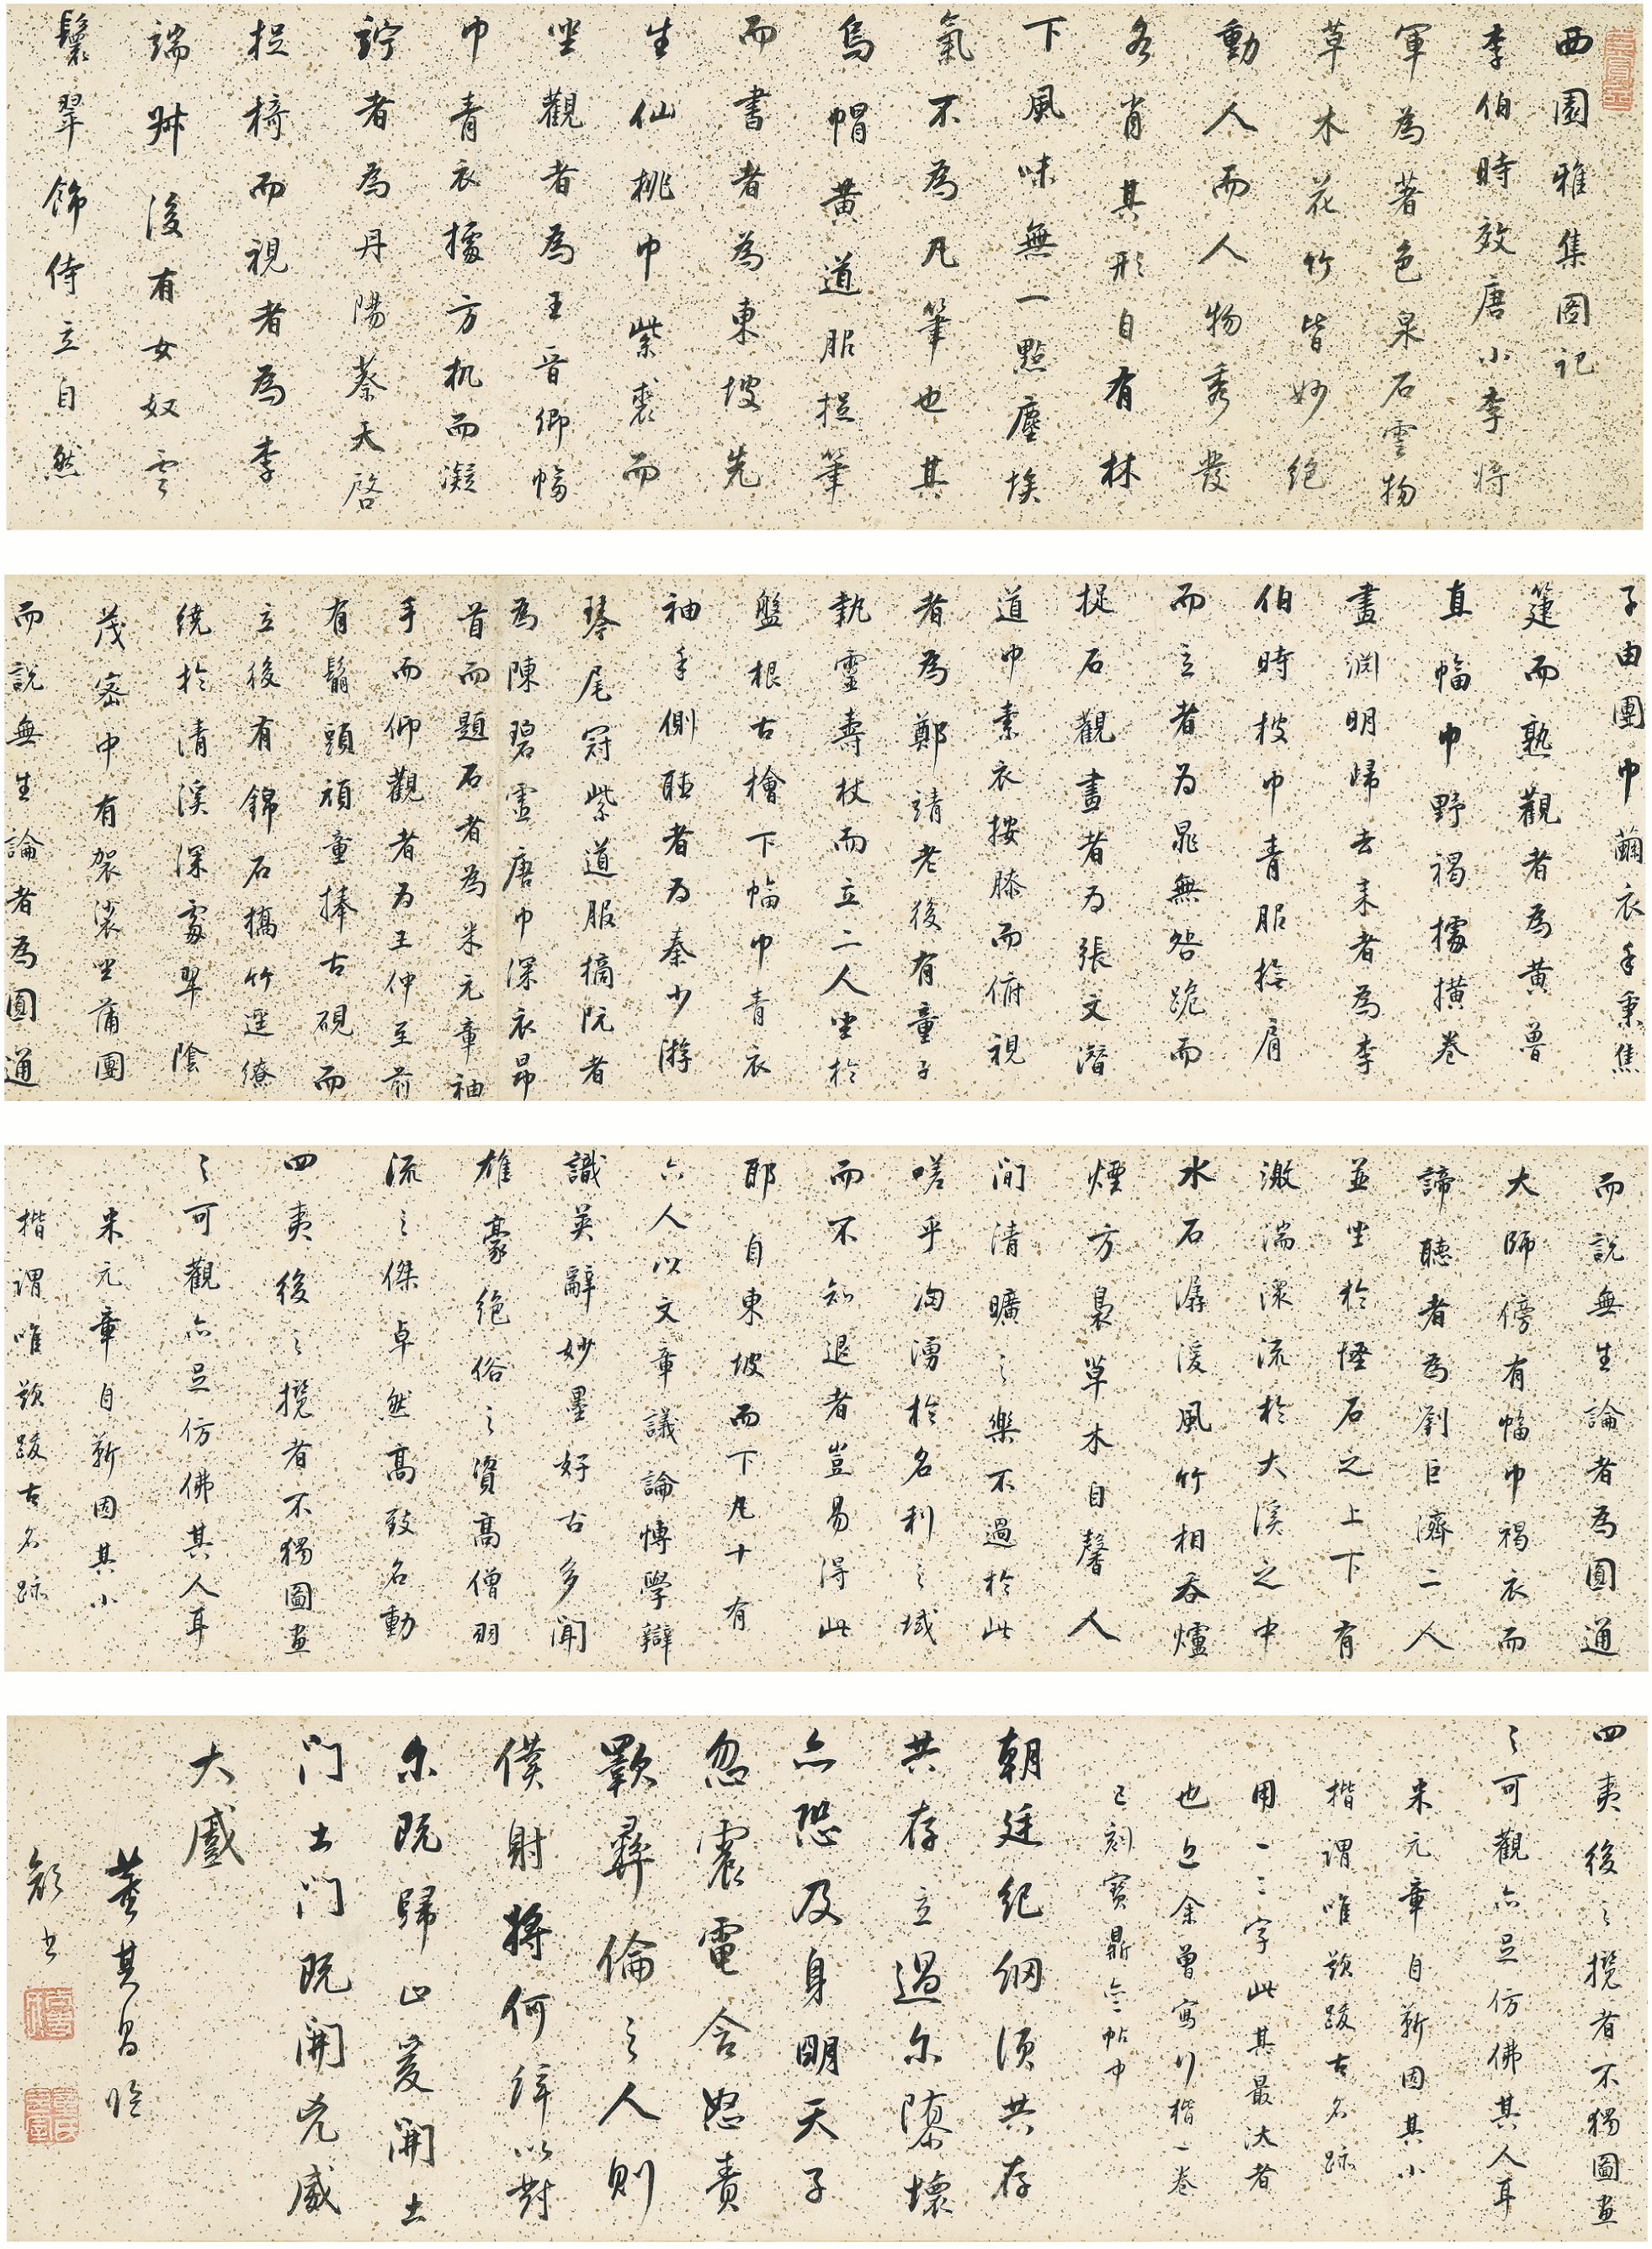 西園雅集圖記
李伯時效唐小李將
軍為著色泉石雲物
草木花竹皆妙絕
動人而人物秀發
各肖其形自有林
下風味無一點塵埃
氣不為凡筆也其
烏帽黃道服捉筆
而書者為東坡先
生仙桃巾紫裘而
坐觀者為王晉卿幅
巾青衣據方机而凝
竚者為丹陽蔡天啓
捉椅而視者為李
端叔後有女奴雲
鬟翠飾侍立自然
子由團巾繭衣手秉蕉
箑而熟觀者為黃魯
直幅巾野褐據橫卷
畫淵明歸去來者為李
伯時披巾青服撫肩
而立者为晁無咎跪而
捉石觀畫者为張文潛
道巾素衣按膝而俯視
者為鄭靖老後有童子
執靈壽杖而立二人坐於
盤根古檜下幅巾青衣
袖手側聽者为秦少游
琴尾冠紫道服摘阮者
為陳碧虛唐巾深衣昂
首而題石者為米元章袖
手而仰觀者为王仲至前
有鬅頭頑童捧古硯而
立後有錦石橋竹逕繚
繞於清溪深處翠陰
茂密中有袈裟坐蒲團
而說無生論者為圓通
而說無生論者為圓通
大師傍有幅巾褐衣而
諦聽者為劉巨濟二人
並坐於怪石之上下有
激湍潨流於大溪之中
水石潺湲風竹相吞爐
煙方裊草木自馨人
間清曠之樂不過於此
嗟乎洶湧於名利之域
而不知退者豈易得此
耶自東坡而下凡十有
六人以文章議論博學辯
識英辭妙墨好古多聞
雄豪絕俗之資高僧羽
流之傑卓然高致名動
四夷後之攬者不獨圖畫
之可觀亦足仿佛其人耳
米元章自靳固其小
楷謂唯題跋古名跡
四夷後之攬者不獨圖畫
之可觀亦足仿佛其人耳
米元章自靳固其小
楷謂唯題跋古名跡
用一二字此其最大者
也已余曾寫行楷一卷
已刻寶鼎齋帖中
朝廷紀綱須共存
共存立過尔隳壞
亦恐及身明天子
忽震電含怒責
斁彝倫之人則
僕射將何辞以對
尔既歸止爰開土
門土門既開兇威
大蹙
董其昌臨
顏书